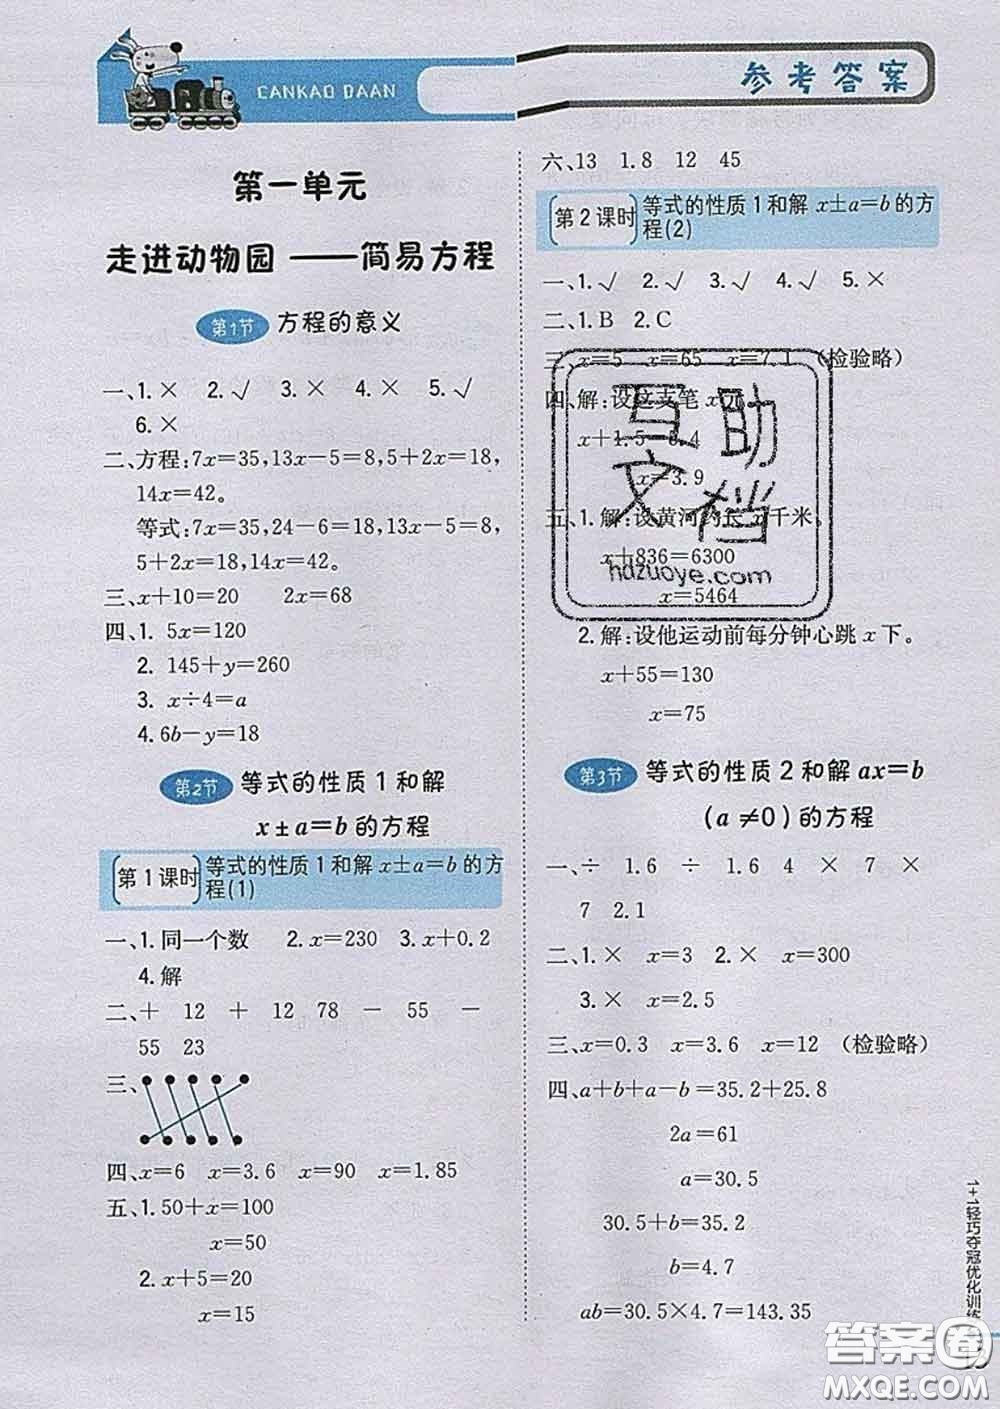 CANKAO DAAN
参考答案
第一单元
走进动物园 ——简易方程
第1节 方程的意义
一、1.× 2.√ 3.× 4.× 5.√
6.×
二、方程:7x=35,13x−5=8,5+2x=18,
14x=42。
等式:7x=35,24−6=18,13x−5=8,
5+2x=18,14x=42。
三、x+10=20 2x=68
四、1. 5x=120
2. 145+y=260
3. x÷4=a
4. 6b−y=18
第2节 等式的性质1和解
x±a=b的方程
第1课时 等式的性质1和解x±a=b的方
程(1)
一、1.同一个数 2.x=230 3.x+0.2
4.解
二、+ 12 + 12 78 − 55 −
55 23
三、
四、x=6 x=3.6 x=90 x=1.85
五、1.50+x=100
x=50
2.x+5=20
x=15
六、13 1.8 12 45
第2课时 等式的性质1和解x±a=b的方
程(2)
一、1.√ 2.√ 3.√ 4.√ 5.×
二、1.B 2.C
三、x=5 x=65 x=7.1 (检验略)
四、解:设这支笔x元。
x+1.5=5.4
x=3.9
五、1.解:设黄河约长x千米。
x+836=6300
x=5464
2.解:设他运动前每分钟心跳x下。
x+55=130
x=75
第3节 等式的性质2和解ax=b
(a≠0)的方程
一、÷ 1.6 ÷ 1.6 4 × 7 ×
7 2.1
二、1.× x=3 2.× x=300
3.× x=2.5
三、x=0.3 x=3.6 x=12 (检验略)
四、a+b+a−b=35.2+25.8
2a=61
a=30.5
30.5+b=35.2
b=4.7
ab=30.5×4.7=143.35
1+1轻巧夺冠优化训练
互助
文档
hdzuoye.com
答案圈
MXQE.COM